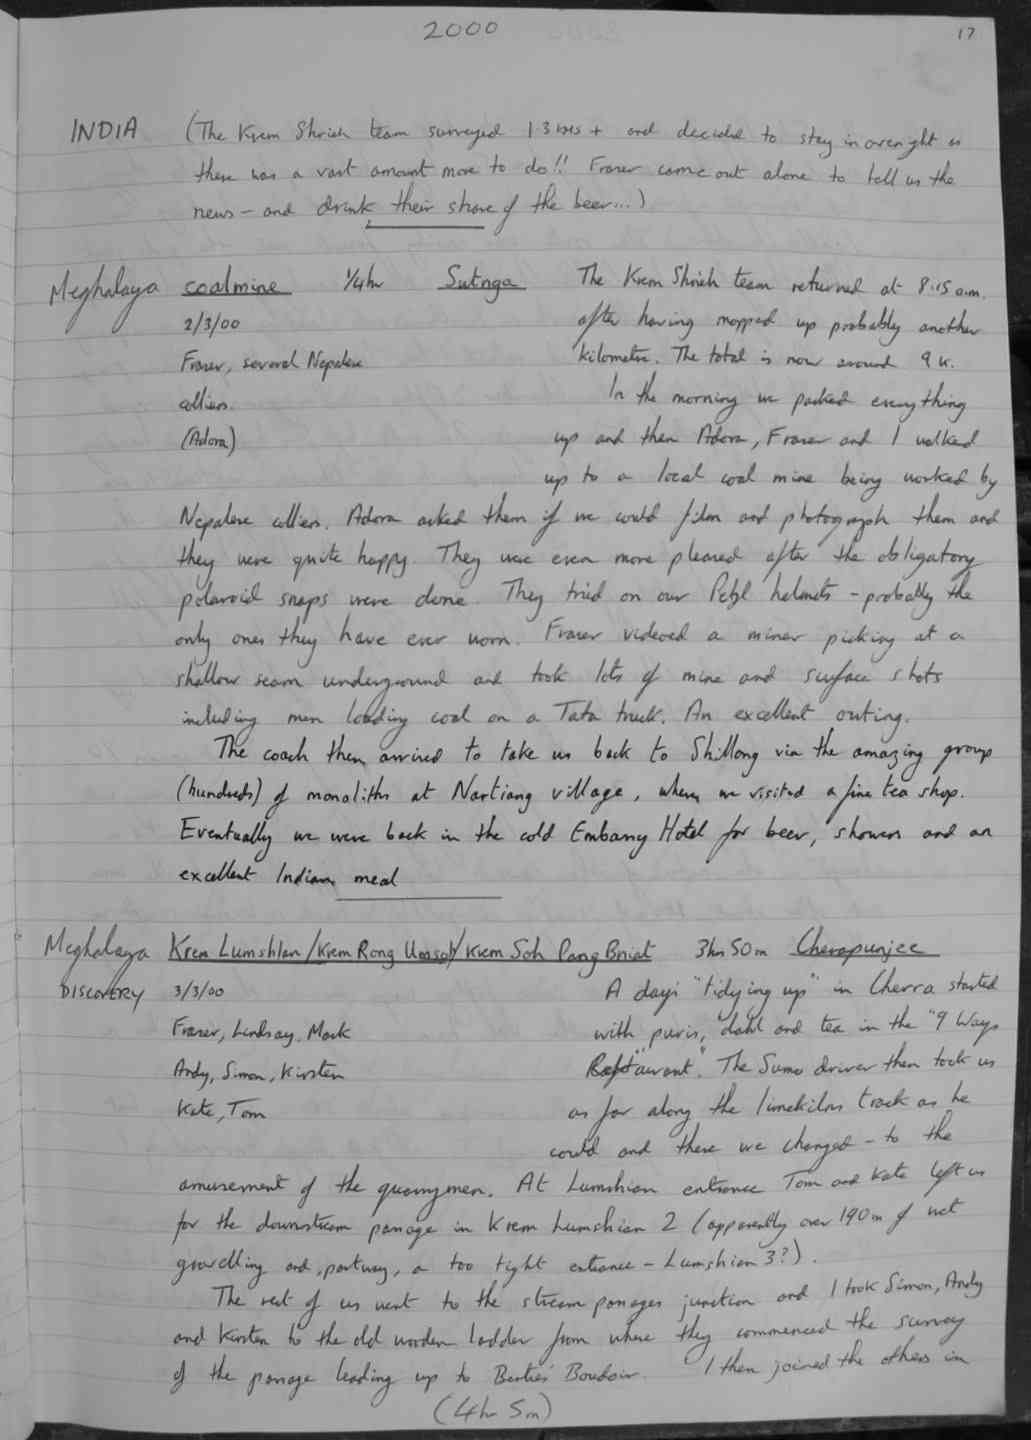 2000
17
INDIA (The Krem Shrieh team surveyed 1.3 kms + and decided to stay in overnight as
there was a vast amount more to do!! Fraser came out alone to tell us the
news - and drink their share of the beer...)
Meghalaya coalmine 1/4hr Sutnga The Krem Shrieh team returned at 8.15 a.m.
2/3/00 after having mopped up probably another
Fraser, several Nepalese kilometre. The total is now around 9 k.
colliers. In the morning we packed everything
(Adora) up and then Adora, Fraser and I walked
up to a local coal mine being worked by
Nepalese colliers. Adora asked them if we could film and photograph them and
they were quite happy. They were even more pleased after the obligatory
polaroid snaps were done. They tried on our Petzl helmets - probably the
only ones they have ever worn. Fraser videoed a miner picking at a
shallow seam underground and took lots of mine and surface shots
including men loading coal on a Tata truck. An excellent outing.
The coach then arrived to take us back to Shillong via the amazing group
(hundreds) of monoliths at Nartiang village, where we visited a fine tea shop.
Eventually we were back in the cold Embassy Hotel for beer, showers and an
excellent Indian meal
Meghalaya Krem Lumshlan/Krem Rong Umsoh/Krem Soh Pang Bniat 3hrs 50m Cherapunjee
DISCOVERY 3/3/00 A day's "tidying up" in Cherra started
Fraser, Lindsay, Mark with puris, dahl and tea in the "9 Ways
Andy, Simon, Kirsten Restaurant". The Sumo driver then took us
Kate, Tom as far along the limekilns track as he
could and there we changed - to the
amusement of the quarrymen. At Lumshlan entrance Tom and Kate left us
for the downstream passage in Krem Lumshlan 2 (apparently over 190m of wet
grovelling and, partway, a too tight entrance - Lumshlan 3?).
The rest of us went to the stream passages junction and I took Simon, Andy
and Kirsten to the old wooden ladder from where they commenced the survey
of the passage leading up to Bertie's Boudoir. I then joined the others in
(4hr 5m)